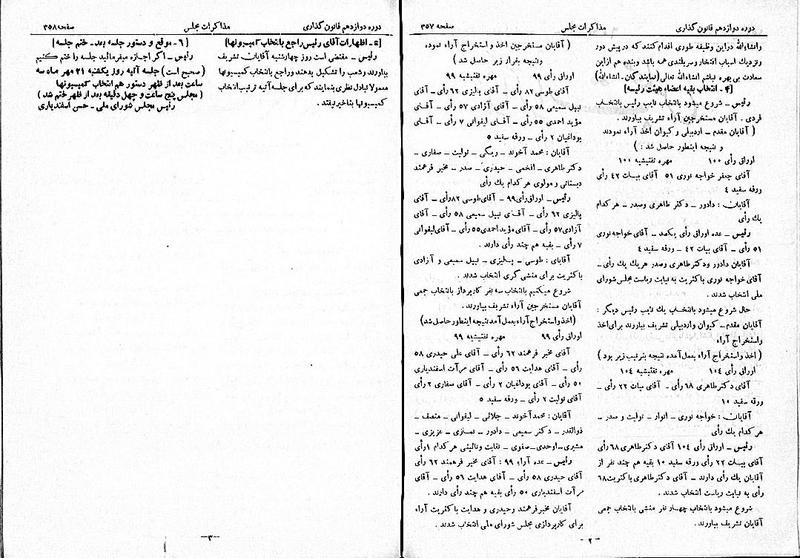 دوره دوازدهم قانون گذاری مذاکرات مجلس صفحه ۳۵۷
وانشاءالله در این وظیفه طوری اقدام کنند که در پیش دور
و نزدیک اسباب افتخار و سربلندی همه باشد و بنده هم از این
سعادت بی‌بهره نباشم انشاءالله تعالی (نمایندگان ـ انشاءالله)
[۴ ـ انتخاب بقیه اعضاء هیئت رئیسه]
رئیس ـ شروع میشود بانتخاب نایب رئیس بانتخاب
فردی . آقایان مستخرجین آراء تشریف بیاورند.
( آقایان مقدم ـ اردبیلی و کیوان اخذ آراء نمودند
و نتیجه اینطور حاصل شد : )
اوراق رأی ۱۰۰ مهره تفتیشیه ۱۰۰
آقای جعفر خواجه نوری ۵۱ آقای بیات ۴۲ رأی
ورقه سفید ۴
آقایان : دادور ـ دکتر طاهری وصدر ـ هر کدام
یك رأی
رئیس ـ عده اوراق رأی یکصد ـ آقای خواجه نوری
۵۱ رأی ـ آقای بیات ۴۲ ـ ورقه سفید ۴
آقایان دادور ودکتر طاهری وصدر هریك یك رأی ـ
آقای خواجه نوری باکثریت به نیابت ریاست مجلس شورای
ملی انتخاب شدند .
حال شروع میشود بانتخاب یك نایب رئیس دیگر :
آقایان مقدم ـ کیوان واردبیلی تشریف بیاورند برای اخذ
و استخراج آراء
( اخذ و استخراج آراء بعمل آمده نتیجه بترتیب زیر بود )
اوراق رأی ۱۰۴ مهره تفتیشیه ۱۰۴
آقای دکتر طاهری ۶۸ رأی ـ آقای بیات ۲۲ رأی ـ
ورقه سفید ۱۰
آقایان : خواجه نوری ـ انوار ـ تولیت و صدر ـ
هر کدام یك رأی
رئیس ـ اوراق رأی ۱۰۴ آقای دکتر طاهری ۶۸ رأی
آقای بیات ۲۲ رأی ورقه سفید ۱۰ بقیه هم چند نفر از
آقایان یك رأی دارند ـ آقای دکتر طاهری باکثریت ۶۸
رأی به نیابت ریاست انتخاب شدند .
شروع میشود بانتخاب چهار نفر منشی بانتخاب جمعی
آقایان تشریف بیاورند .
ـ ۲ ـ
( آقایان مستخرجین اخذ و استخراج آراء نموده
ونتیجه بقرار زیر حاصل شد )
اوراق رأی ۹۹ مهره تفتیشیه ۹۹
آقای طوسی ۸۲ رأی ـ آقای پالیزی ۶۲ رأی ـ آقای
نبیل سمیعی ۵۸ رأی ـ آقای آزادی ۵۷ رأی ـ آقای
مؤید احمدی ۵۵ رأی ـ آقای لیقوانی ۷ رأی ـ آقای
بوداغیان ۲ رأی ـ ورقه سفید ۵
آقایان : محمد آخوند ـ ریگی ـ تولیت ـ سفاری ـ
دکتر طاهری ـ افخمی ـ حیدری ـ صدر ـ مخبر فرهمند
دبستانی و مولوی هر کدام یك رأی
رئیس ـ اوراق رأی ۹۹ ـ آقای طوسی ۸۲ رأی ـ آقای
پالیزی ۶۲ رأی ـ آقای نبیل سمیعی ۵۸ رأی ـ آقای
آزادی ۵۷ رأی ـ آقای مؤید احمدی ۵۵ رأی ـ آقای لیقوانی
۷ رأی ـ بقیه هم چند رأی دارند .
آقایان : طوسی ـ پالیزی ـ نبیل سمیعی و آزادی
باکثریت برای منشی گری انتخاب شدند .
شروع میکنیم بانتخاب سه نفر کارپرداز بانتخاب جمعی
آقایان مستخرجین آراء تشریف بیاورند .
(اخذ و استخراج آراء بعمل آمد نتیجه اینطور حاصل شد)
اوراق رأی ۹۹ مهره تفتیشیه ۹۹
آقای مخبر فرهمند ۶۲ رأی ـ آقای علی حیدری ۵۸
رأی ـ آقای هدایت ۵۶ رأی ـ آقای مرآت اسفندیاری
۵۰ رأی ـ آقای بوداغیان ۲ رأی ـ آقای سفاری ۲ رأی
آقای تولیت ۲ رأی ـ ورقه سفید ۵
آقایان : محمد آخوند ـ جلائی ـ لیقوانی ـ منصف ـ
ذوالقدر ـ دکتر سمیعی ـ دادور ـ ـ عزیزی ـ
مشیری ـ اوحدی ـ صفوی ـ نقابت ونائینی هر کدام ۱ رأی
رئیس ـ عده آراء ۹۹ : آقای مخبر فرهمند ۶۲ رأی
آقای حیدری ۵۸ رأی ـ آقای هدایت ۵۶ رأی ـ آقای
مرآت اسفندیاری ۵۰ رأی بقیه هم چند رأی دارند .
آقایان مخبر فرهمند وحیدری و هدایت باکثریت آراء
برای کارپردازی مجلس شورای ملی انتخاب شدند .
دوره دوازدهم قانون گذاری مذاکرات مجلس صفحه ۳۵۸
[۵ ـ اظهارات آقای رئیس راجع بانتخاب کمیسیونها]
رئیس ـ مقتضی است روز چهارشنبه آقایان تشریف
بیاورند وشعب را تشکیل بدهند وراجع بانتخاب کمیسیونها
معمولا تبادل نظری بنمایند که برای جلسه آتیه ترتیب انتخاب
کمیسیونها بتأخیر نیفتد .
[۶ ـ موقع و دستور جلسه بعد ـ ختم جلسه]
رئیس ـ اگر اجازه میفرمائید جلسه را ختم کنیم
(صحیح است) جلسه آتیه روز یکشنبه ۲۱ مهر ماه سه
ساعت بعد از ظهر دستور هم انتخاب کمیسیونها
(مجلس پنج ساعت و چهل دقیقه بعد از ظهر ختم شد)
رئیس مجلس شورای ملی ـ حسن اسفندیاری
ـ ۳ ـ